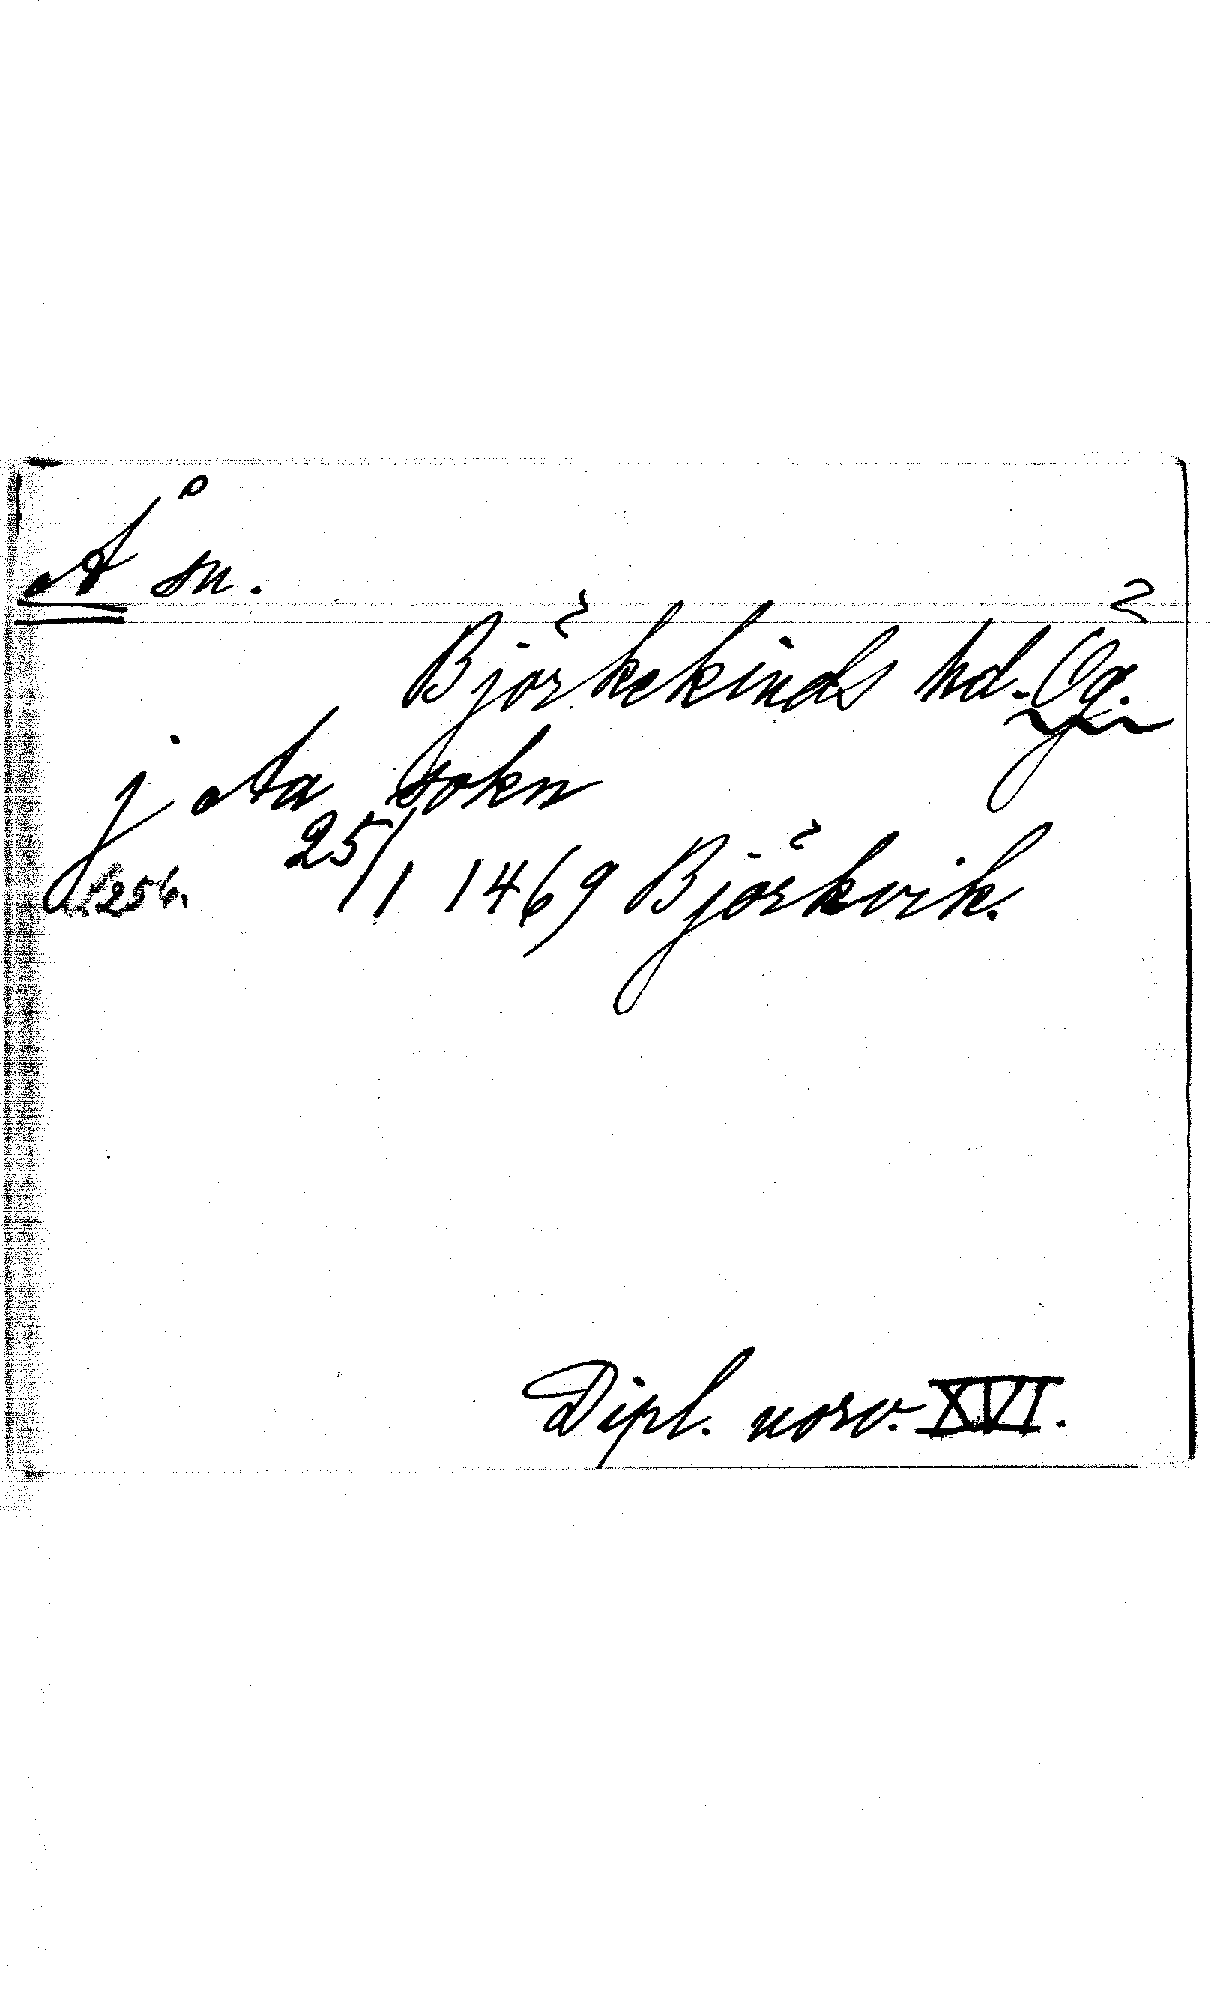 Å sn.
Björkekinds hd. Ög.
j Aa sokn
s. 256. 25/1 1469 Björkvik.
Dipl. norv. XVI.